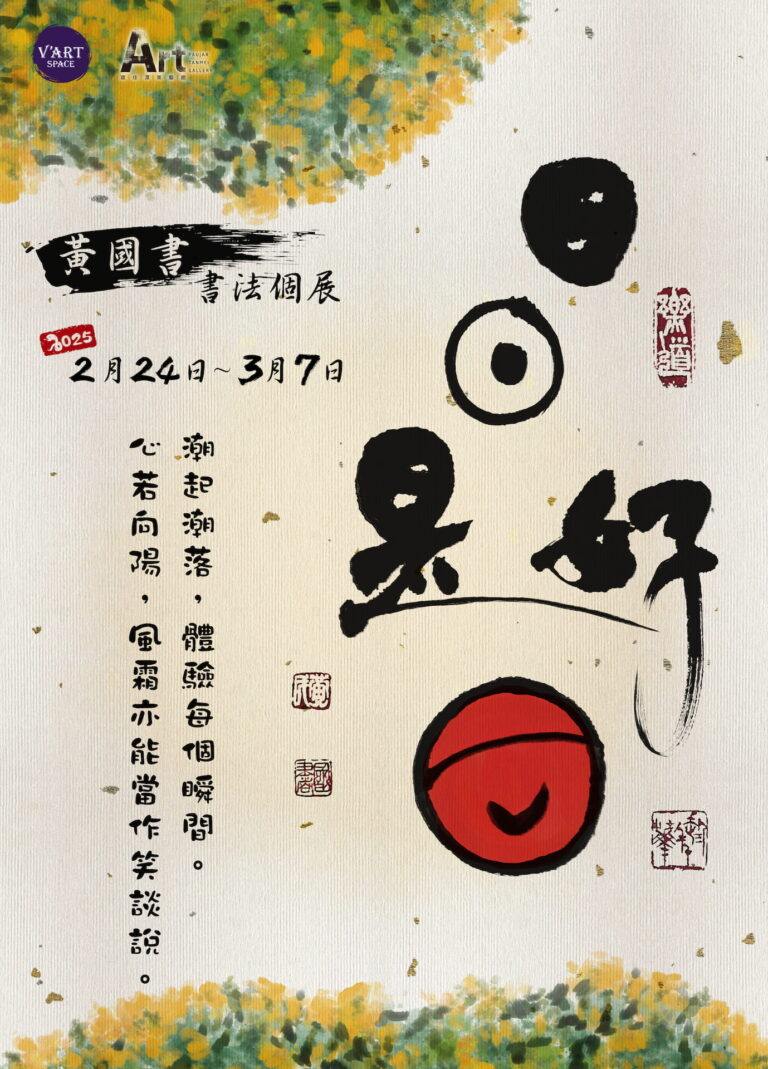 V'ART
SPACE
Art
黃國書
書法個展
2025
2月24日~3月7日
日日是好日
潮起潮落，體驗每個瞬間。
心若向陽，風霜亦能當作笑談說。
樂道